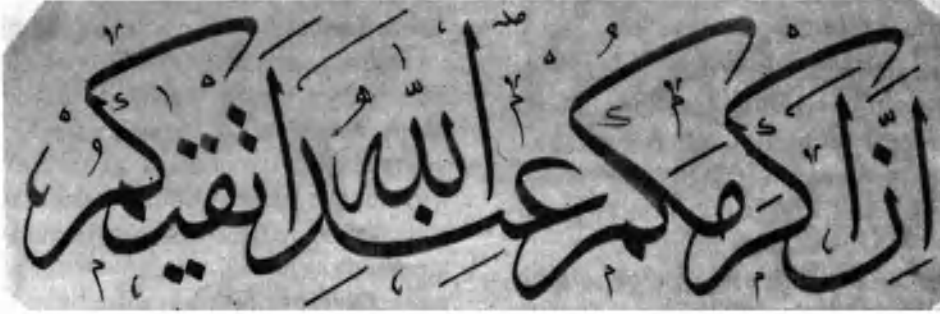 اِنَّ اَكْرَمَكُمْ عِنْدَ اللّٰهِ اَتْقٰيكُمْ